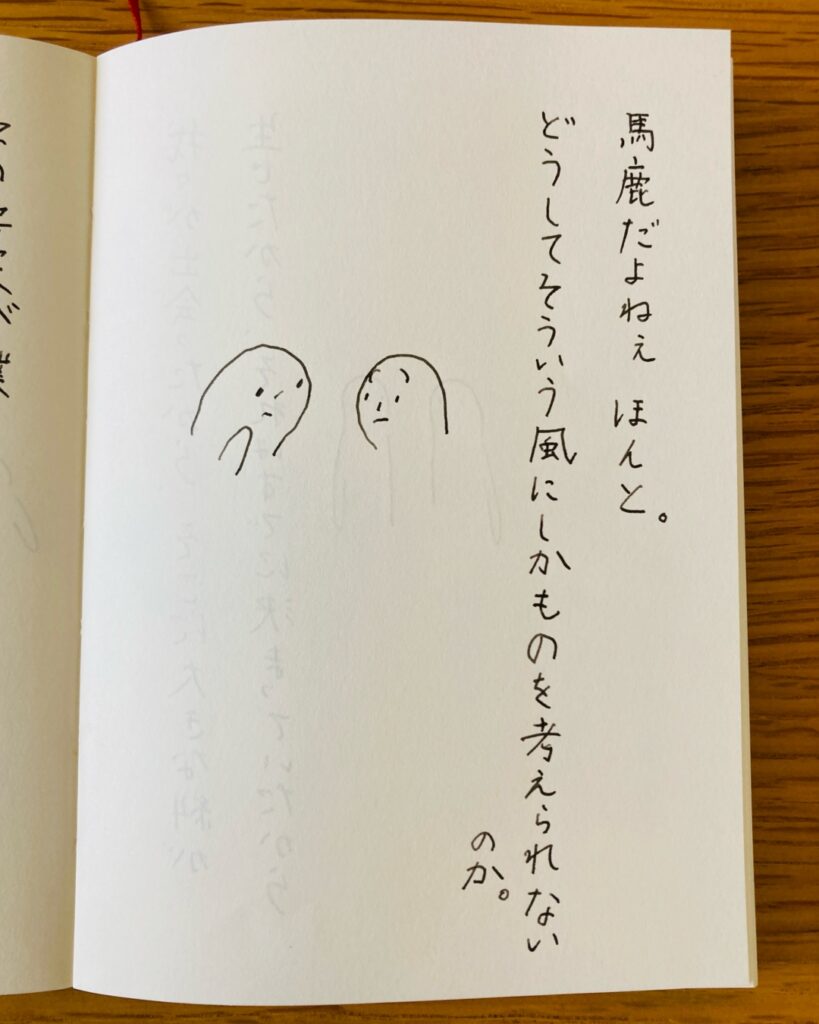 馬鹿だよねぇ ほんと。
どうしてそういう風にしかものを考えられない
のか。